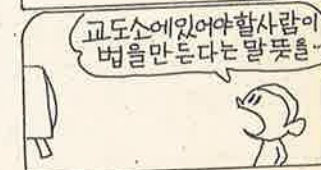 교도소에있어야할사람이
법을만든다는말뜻을··